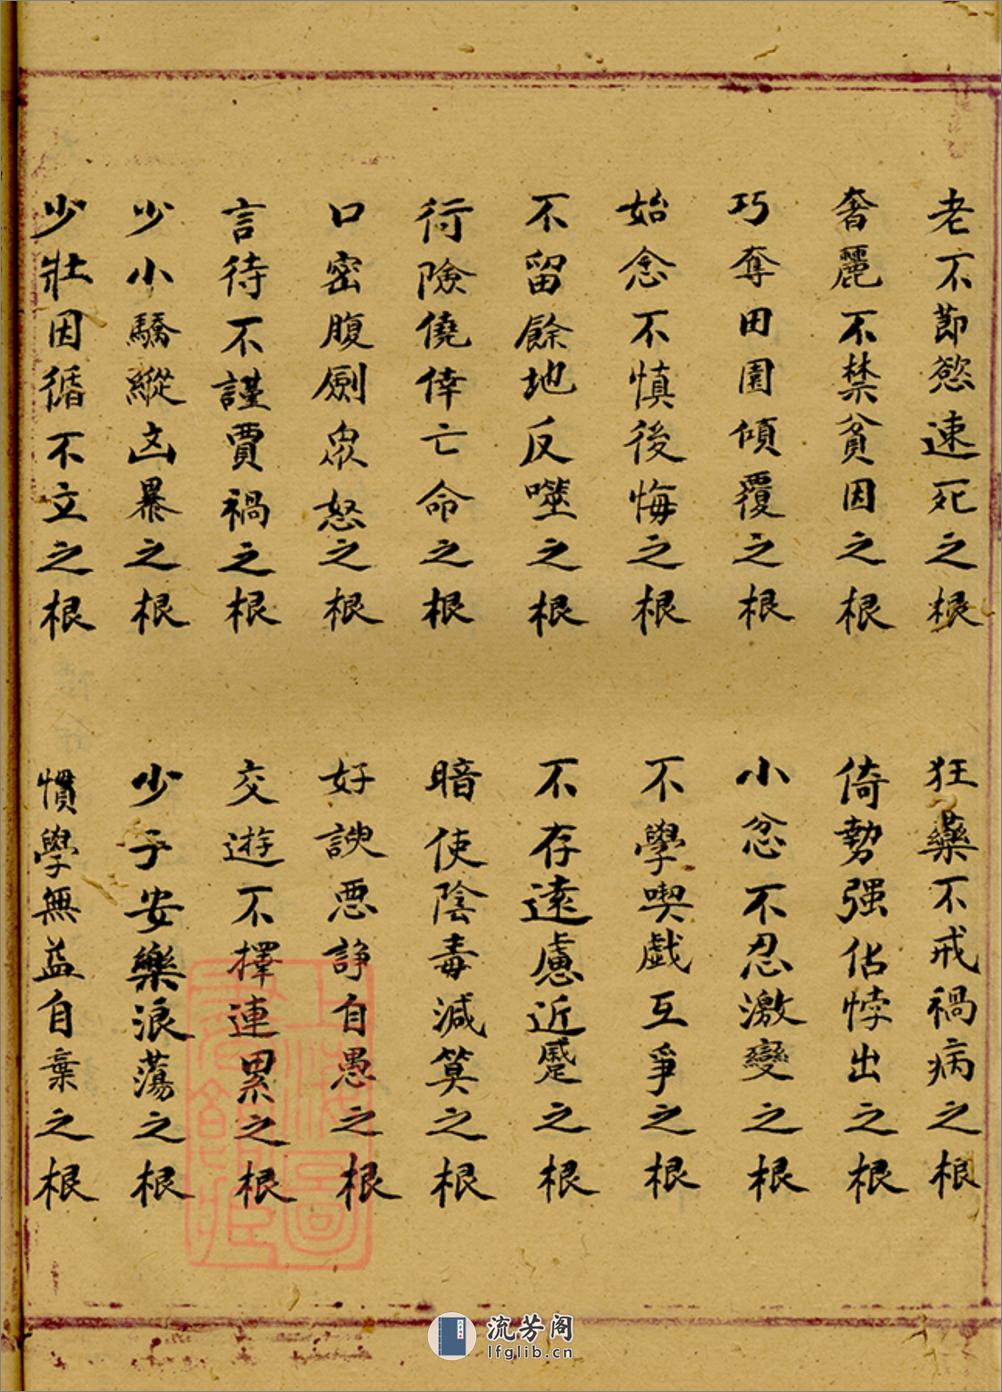 老不節慾速死之根
狂藥不戒禍病之根
奢麗不禁貧因之根
倚勢强佔悖出之根
巧奪田園傾覆之根
小忿不忍激變之根
始念不慎後悔之根
不學喫戲互爭之根
不留餘地反噬之根
不存遠慮近蹙之根
行險僥倖亡命之根
暗使陰毒減算之根
口密腹劍眾怒之根
好諛惡諍自愚之根
言待不謹賈禍之根
交遊不擇連累之根
少小驕縱凶暴之根
少于安樂浪蕩之根
少壯因循不立之根
慣學無益自棄之根
上海圖書館藏
流芳阁
lfglib.cn